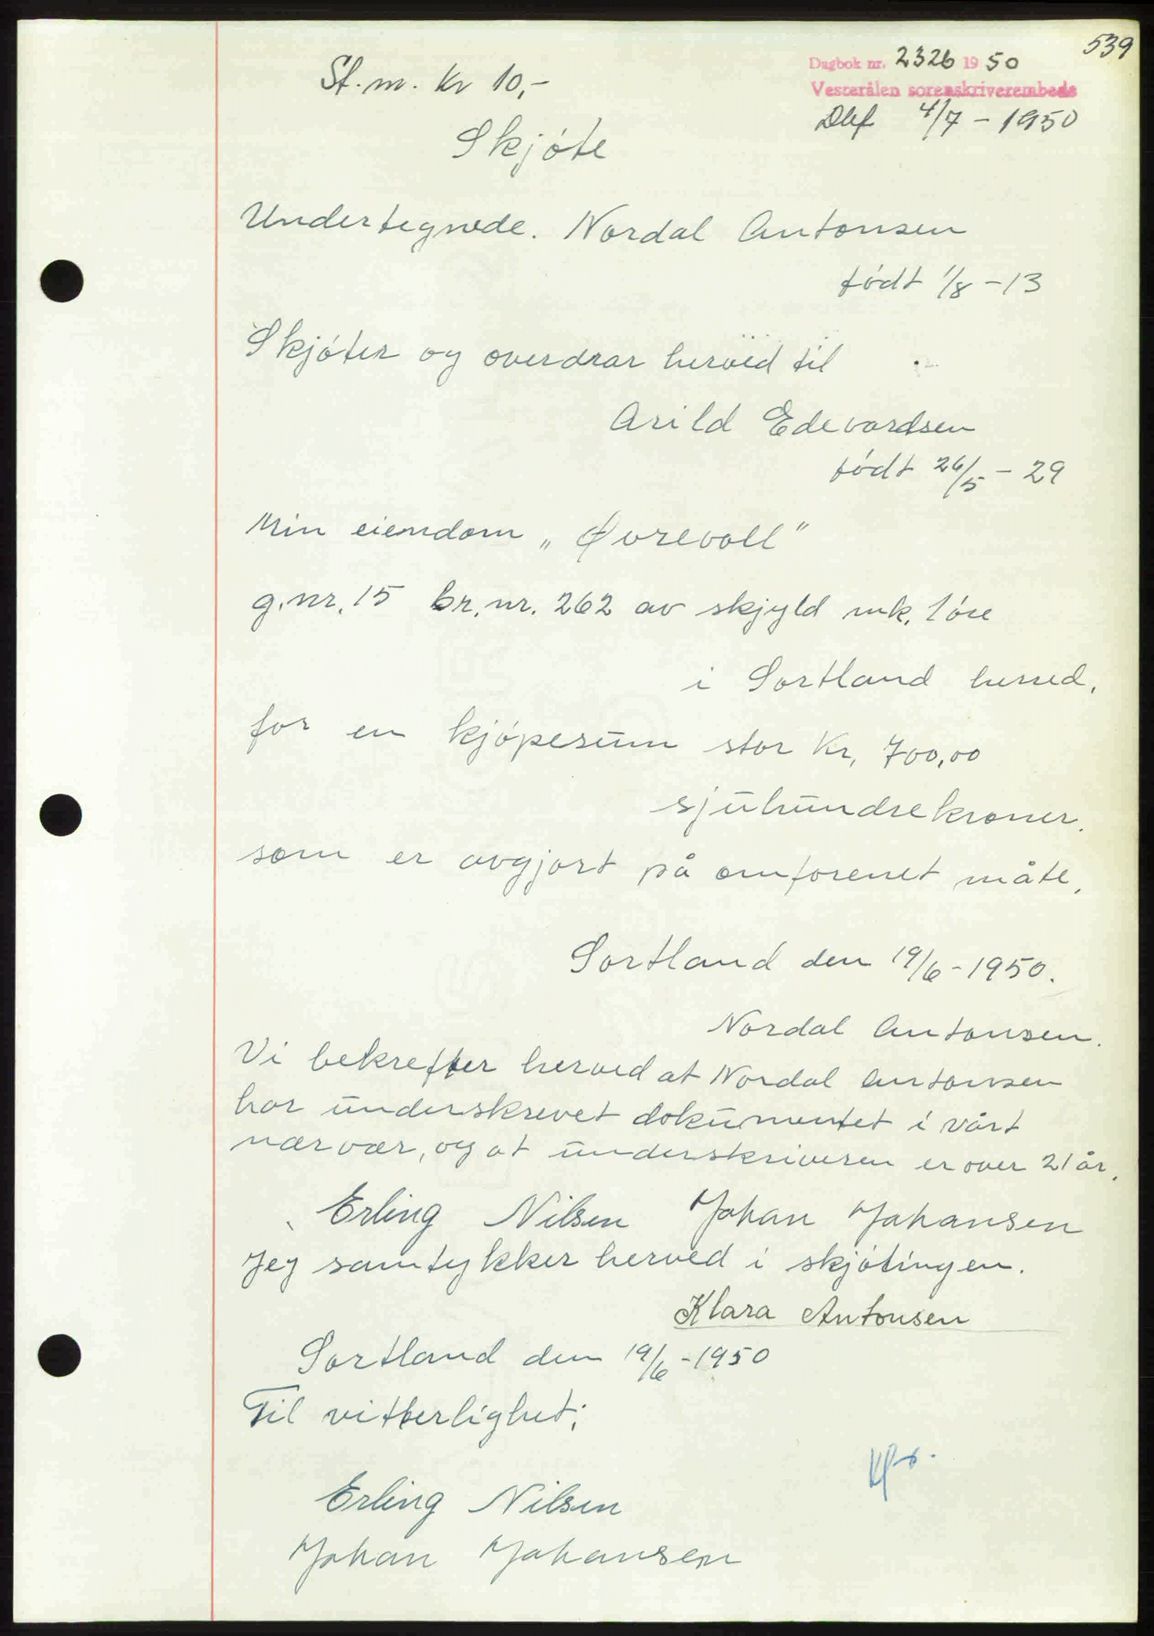 539
Dagbok nr. 2326 1950
Vesterålen sorenskriverembede
St.m. Kr 10,-
Dbf 4/7 - 1950
Skjóte
Undertegnede. Nordal Antonsen
født 1/8 - 13
Skjóter og overdrar herved til
Arild Edevardsen
født 26/5 - 29
Min eiendom „Øvrevoll"
g.nr. 15 br.nr. 262 av skjyld mk. 1 øre
i Sortland herred.
for en kjøpesum stor Kr. 700,00
sjuhundrekroner.
som er avgjort på omforenet måte.
Sortland den 19/6 - 1950.
Nordal Antonsen.
Vi bekrefter herved at Nordal Antonsen
har underskrevet dokumentet i vårt
nærvær, og at underskriveren er over 21 år.
Erling Nilsen Johan Johansen
Jeg samtykker herved i skjøtingen.
Klara Antonsen
Sortland den 19/6 - 1950
Til vitterlighet;
Erling Nilsen
Johan Johansen